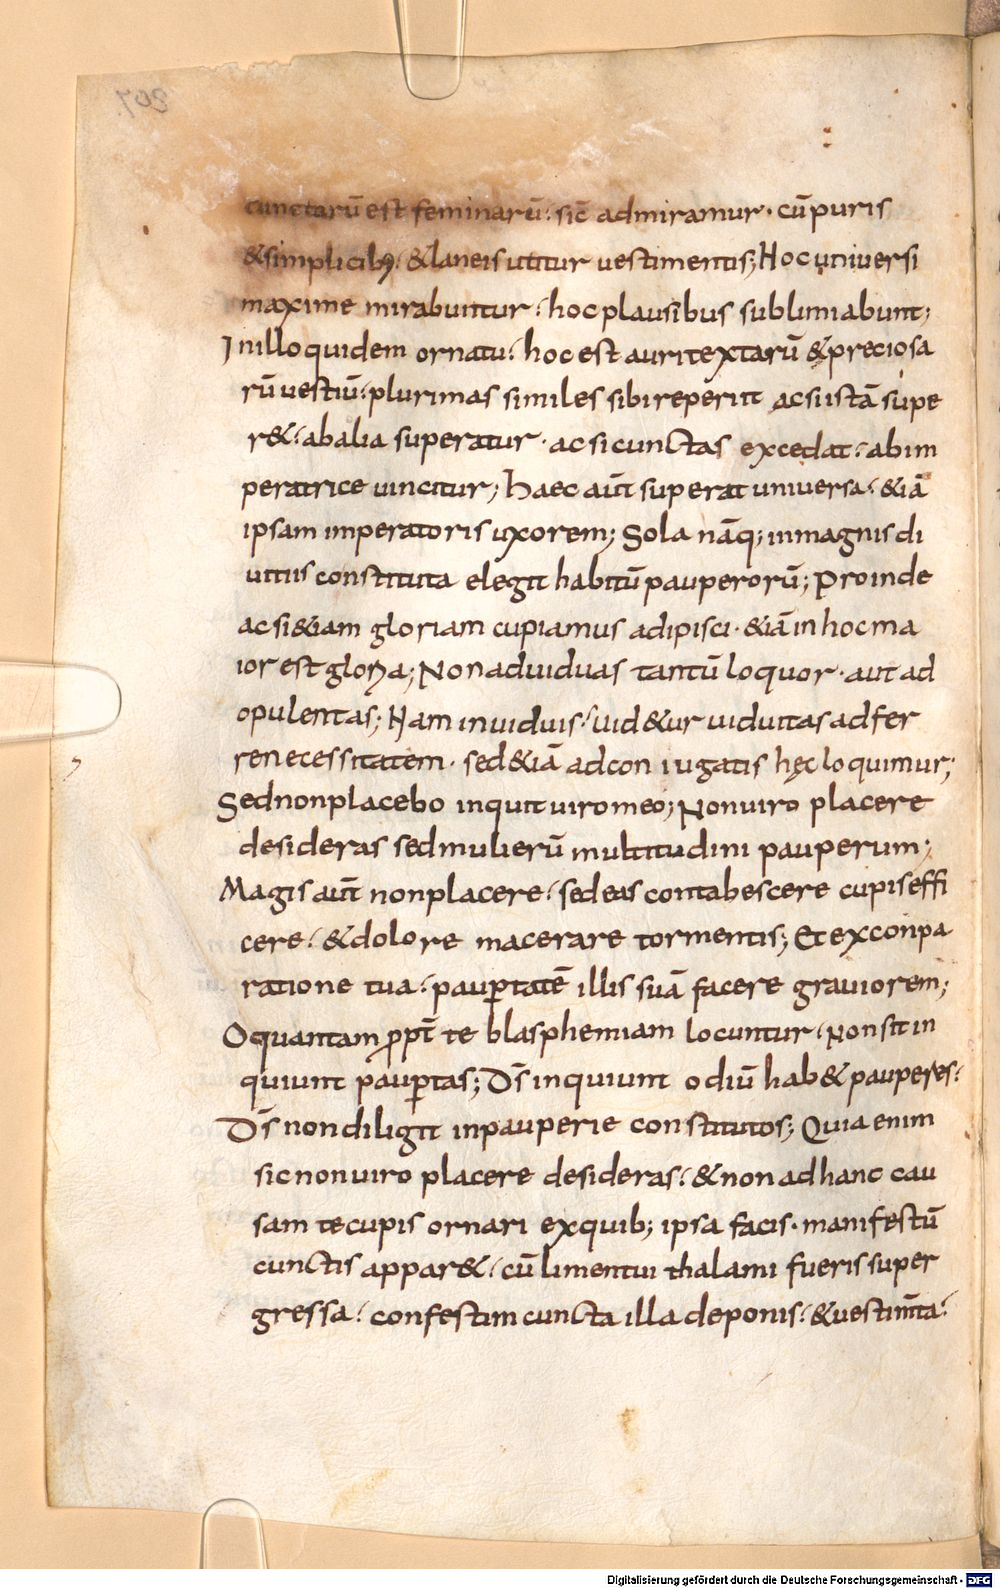 cunctarū est feminarū: sic̄ admiramur· cū puris
& simplicib; & laneis utitur uestimentis; Hoc uniuersi
maxime mirabuntur: hoc plausibus sublimiabunt;
In illo quidem ornatu: hoc est auritextarū & preciosa
rū uestiū: plurimas similes sibi reperit ac si istā supe
r&: ab alia superatur· ac si cunctas excedat: ab im
peratrice uincitur; Haec aūt superat uniuersa: &iā
ipsam imperatoris uxorem; Sola nāq; in magnis di
uitiis constituta elegit habitū pauperorū; Proinde
ac si &iam gloriam cupiamus adipisci· &iā in hoc ma
ior est gloria; Non ad uiduas tantū loquor· aut ad
opulentas; Nam in uiduis: uid&ur uiduitas adfer
re necessitatem· sed &iā ad coniugatis hęc loquimur;
Sed non placebo inquit uiro meo; Non uiro placere
desideras sed mulierū multitudini pauperum;
Magis aūt non placere: sed eas contabescere cupis effi
cere: & dolore macerare tormentis; Et ex conpa
ratione tua: paup̱tatē illis suā facere grauiorem;
O quantam ꝓpt̄ te blasphemiam locuntur: Non sit in
quiunt paup̱tas; D̄s inquiunt odiū hab& pauperes:
D̄s non diligit in pauperie constitutos; Quia enim
sic non uiro placere desideras: & non ad hanc cau
sam te cupis ornari ex quib; ipsa facis· manifestū
cunctis appar&: cū limen tui thalami fueris super
gressa: confestim cuncta illa deponis: & uestim̄ta:
Digitalisierung gefördert durch die Deutsche Forschungsgemeinschaft - DFG